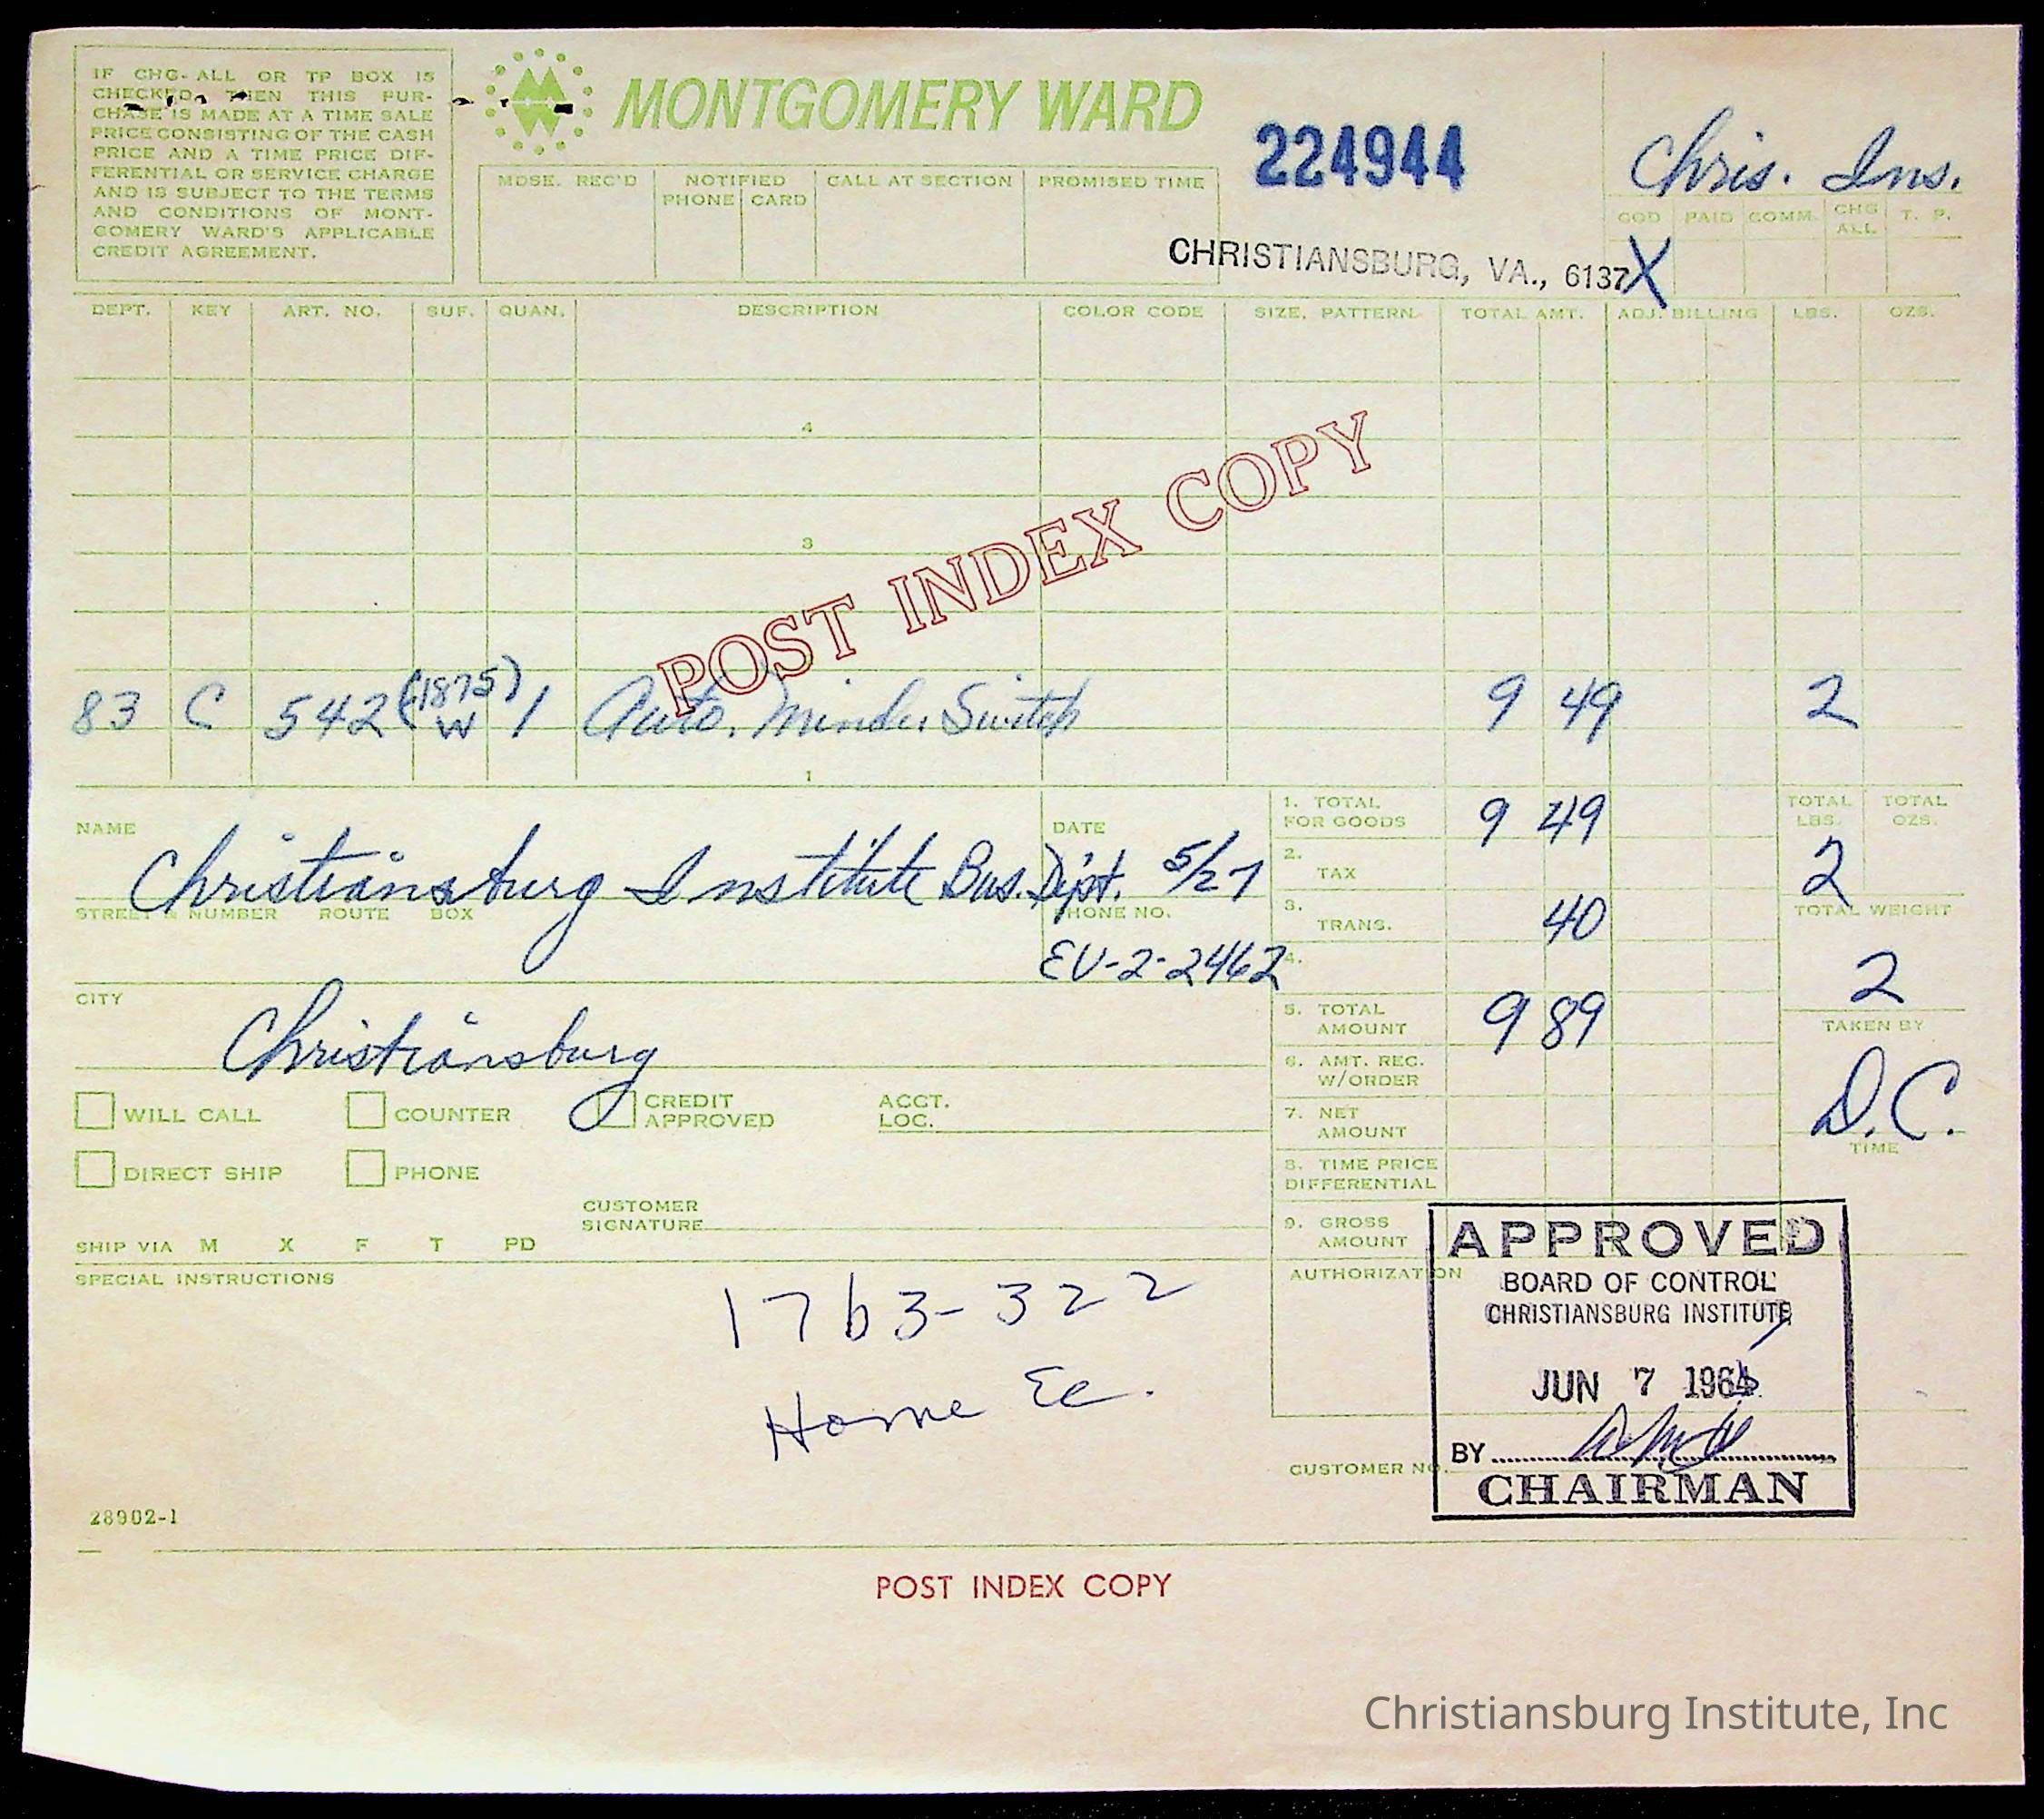 IF CHG-ALL OR TP BOX IS
CHECKED, THEN THIS PUR-
CHASE IS MADE AT A TIME SALE
PRICE CONSISTING OF THE CASH
PRICE AND A TIME PRICE DIF-
FERENTIAL OR SERVICE CHARGE
AND IS SUBJECT TO THE TERMS
AND CONDITIONS OF MONT-
GOMERY WARD'S APPLICABLE
CREDIT AGREEMENT.
MONTGOMERY WARD
224944
Chris. Ins.
MDSE. REC'D NOTIFIED PHONE CARD CALL AT SECTION PROMISED TIME
COD PAID COMM. CHG ALL T. P.
CHRISTIANSBURG, VA., 6137 X
DEPT. KEY ART. NO. SUF. QUAN. DESCRIPTION COLOR CODE SIZE, PATTERN TOTAL AMT. ADJ. BILLING LBS. OZS.
4
3
POST INDEX COPY
83 C 542 (1875) W 1 Auto. Minder Switch 9 49 2
1
NAME Christiansburg Institute Bus. Dept.
DATE 5/27
1. TOTAL FOR GOODS 9 49
TOTAL LBS. 2 TOTAL OZS.
2. TAX
STREET & NUMBER ROUTE BOX
PHONE NO. EV-2-2462
3. TRANS. 40
TOTAL WEIGHT 2
4.
CITY Christiansburg
5. TOTAL AMOUNT 9 89
TAKEN BY D.C.
6. AMT. REC. W/ORDER
WILL CALL COUNTER CREDIT APPROVED ACCT. LOC.
7. NET AMOUNT
TIME
DIRECT SHIP PHONE
8. TIME PRICE DIFFERENTIAL
CUSTOMER SIGNATURE
9. GROSS AMOUNT
SHIP VIA M X F T PD
SPECIAL INSTRUCTIONS
1763-322
Home Ec.
AUTHORIZATION
APPROVED
BOARD OF CONTROL
CHRISTIANSBURG INSTITUTE
JUN 7 196
BY
CHAIRMAN
CUSTOMER NO.
28902-1
POST INDEX COPY
Christiansburg Institute, Inc